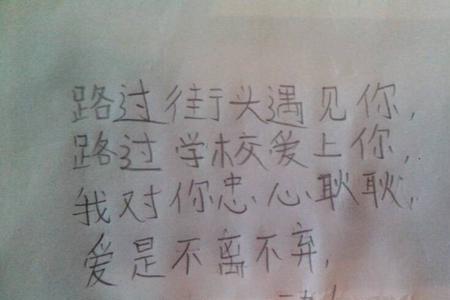 路过街头遇见你，
路过学校爱上你，
我对你忠心耿耿，
爱是不离不弃，